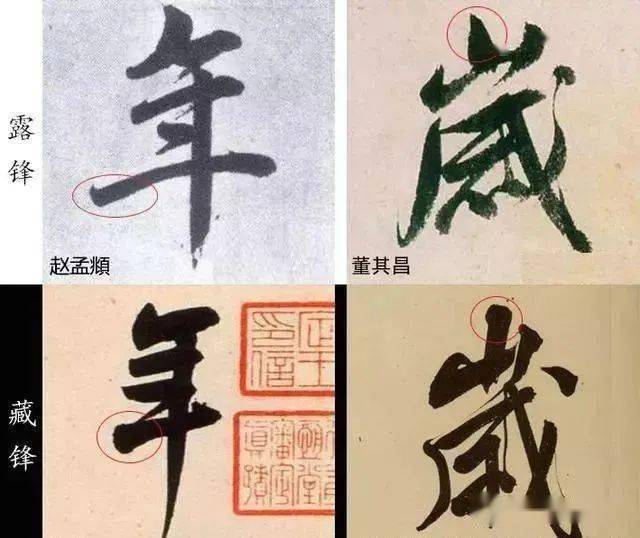 露锋
年
歲
赵孟頫
董其昌
藏锋
年
歲